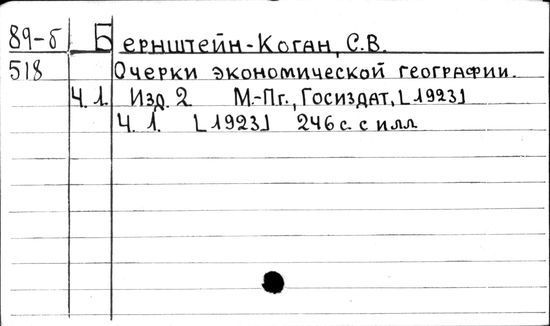 89-б Бернштейн-Коган, С.В.
518 Очерки экономической географии.
Ч. 1. Изд. 2 М.-Пг., Госиздат, [1923]
Ч. 1. [1923] 246 с. с илл.